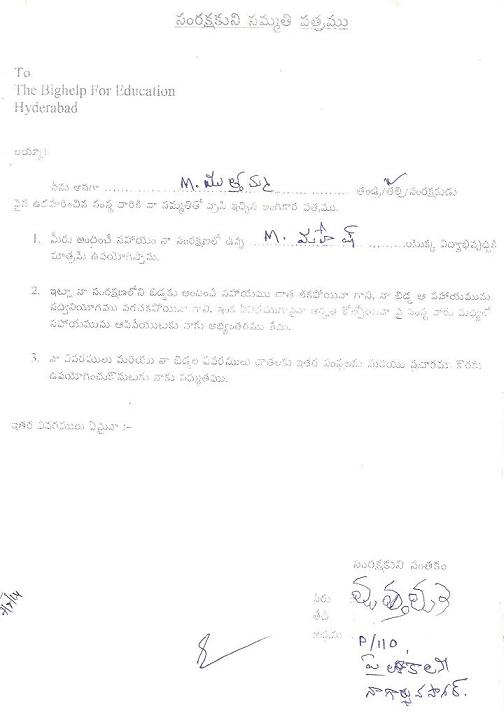 సంరక్షకుని సమ్మతి పత్రము
To
The Bighelp For Education
Hyderabad
అయ్యా!
నేను అనగా M. ముత్తమ్మ తండ్రి/తల్లి/సంరక్షకుడు
పైన ఉదహరించిన సంస్థ వారికి నా సమ్మతితో వ్రాసి ఇచ్చిన అంగీకార పత్రము.
1. మీరు అందించే సహాయం నా సంరక్షణలో ఉన్న M. మహేష్ యొక్క విద్యాభివృద్ధికి
మాత్రమే ఉపయోగిస్తాను.
2. ఇట్లా నా సంరక్షణలోని బిడ్డకు అందించే సహాయము దాత లేకపోయినా గాని, నా బిడ్డ ఆ సహాయమును
సద్వినియోగము పరచకపోయినా గాని, అర్హత కోల్పోయినా పై సంస్థ వారు మధ్యలో
సహాయమును ఆపివేయుటకు నాకు అభ్యంతరము లేదు.
3. నా వివరములు మరియు నా బిడ్డల వివరములు దాతలకు ఇతర సంస్థలకు మరియు ప్రచారము కొరకు
ఉపయోగించుకొనుటకు నాకు సమ్మతము.
ఇతర వివరములు ఏమైనా :-
సంరక్షకుని సంతకం
పేరు
తేదీ
P/110,
పైలాకాలని
నాగార్జున సాగర్.